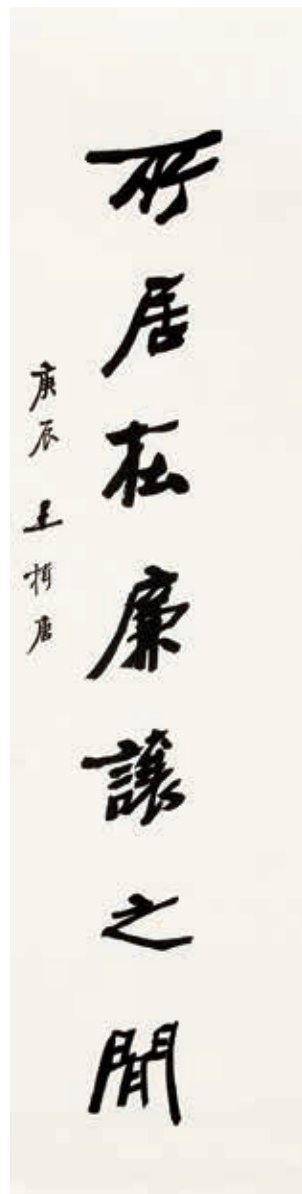 所居在廉讓之閒
庚辰 王揖唐